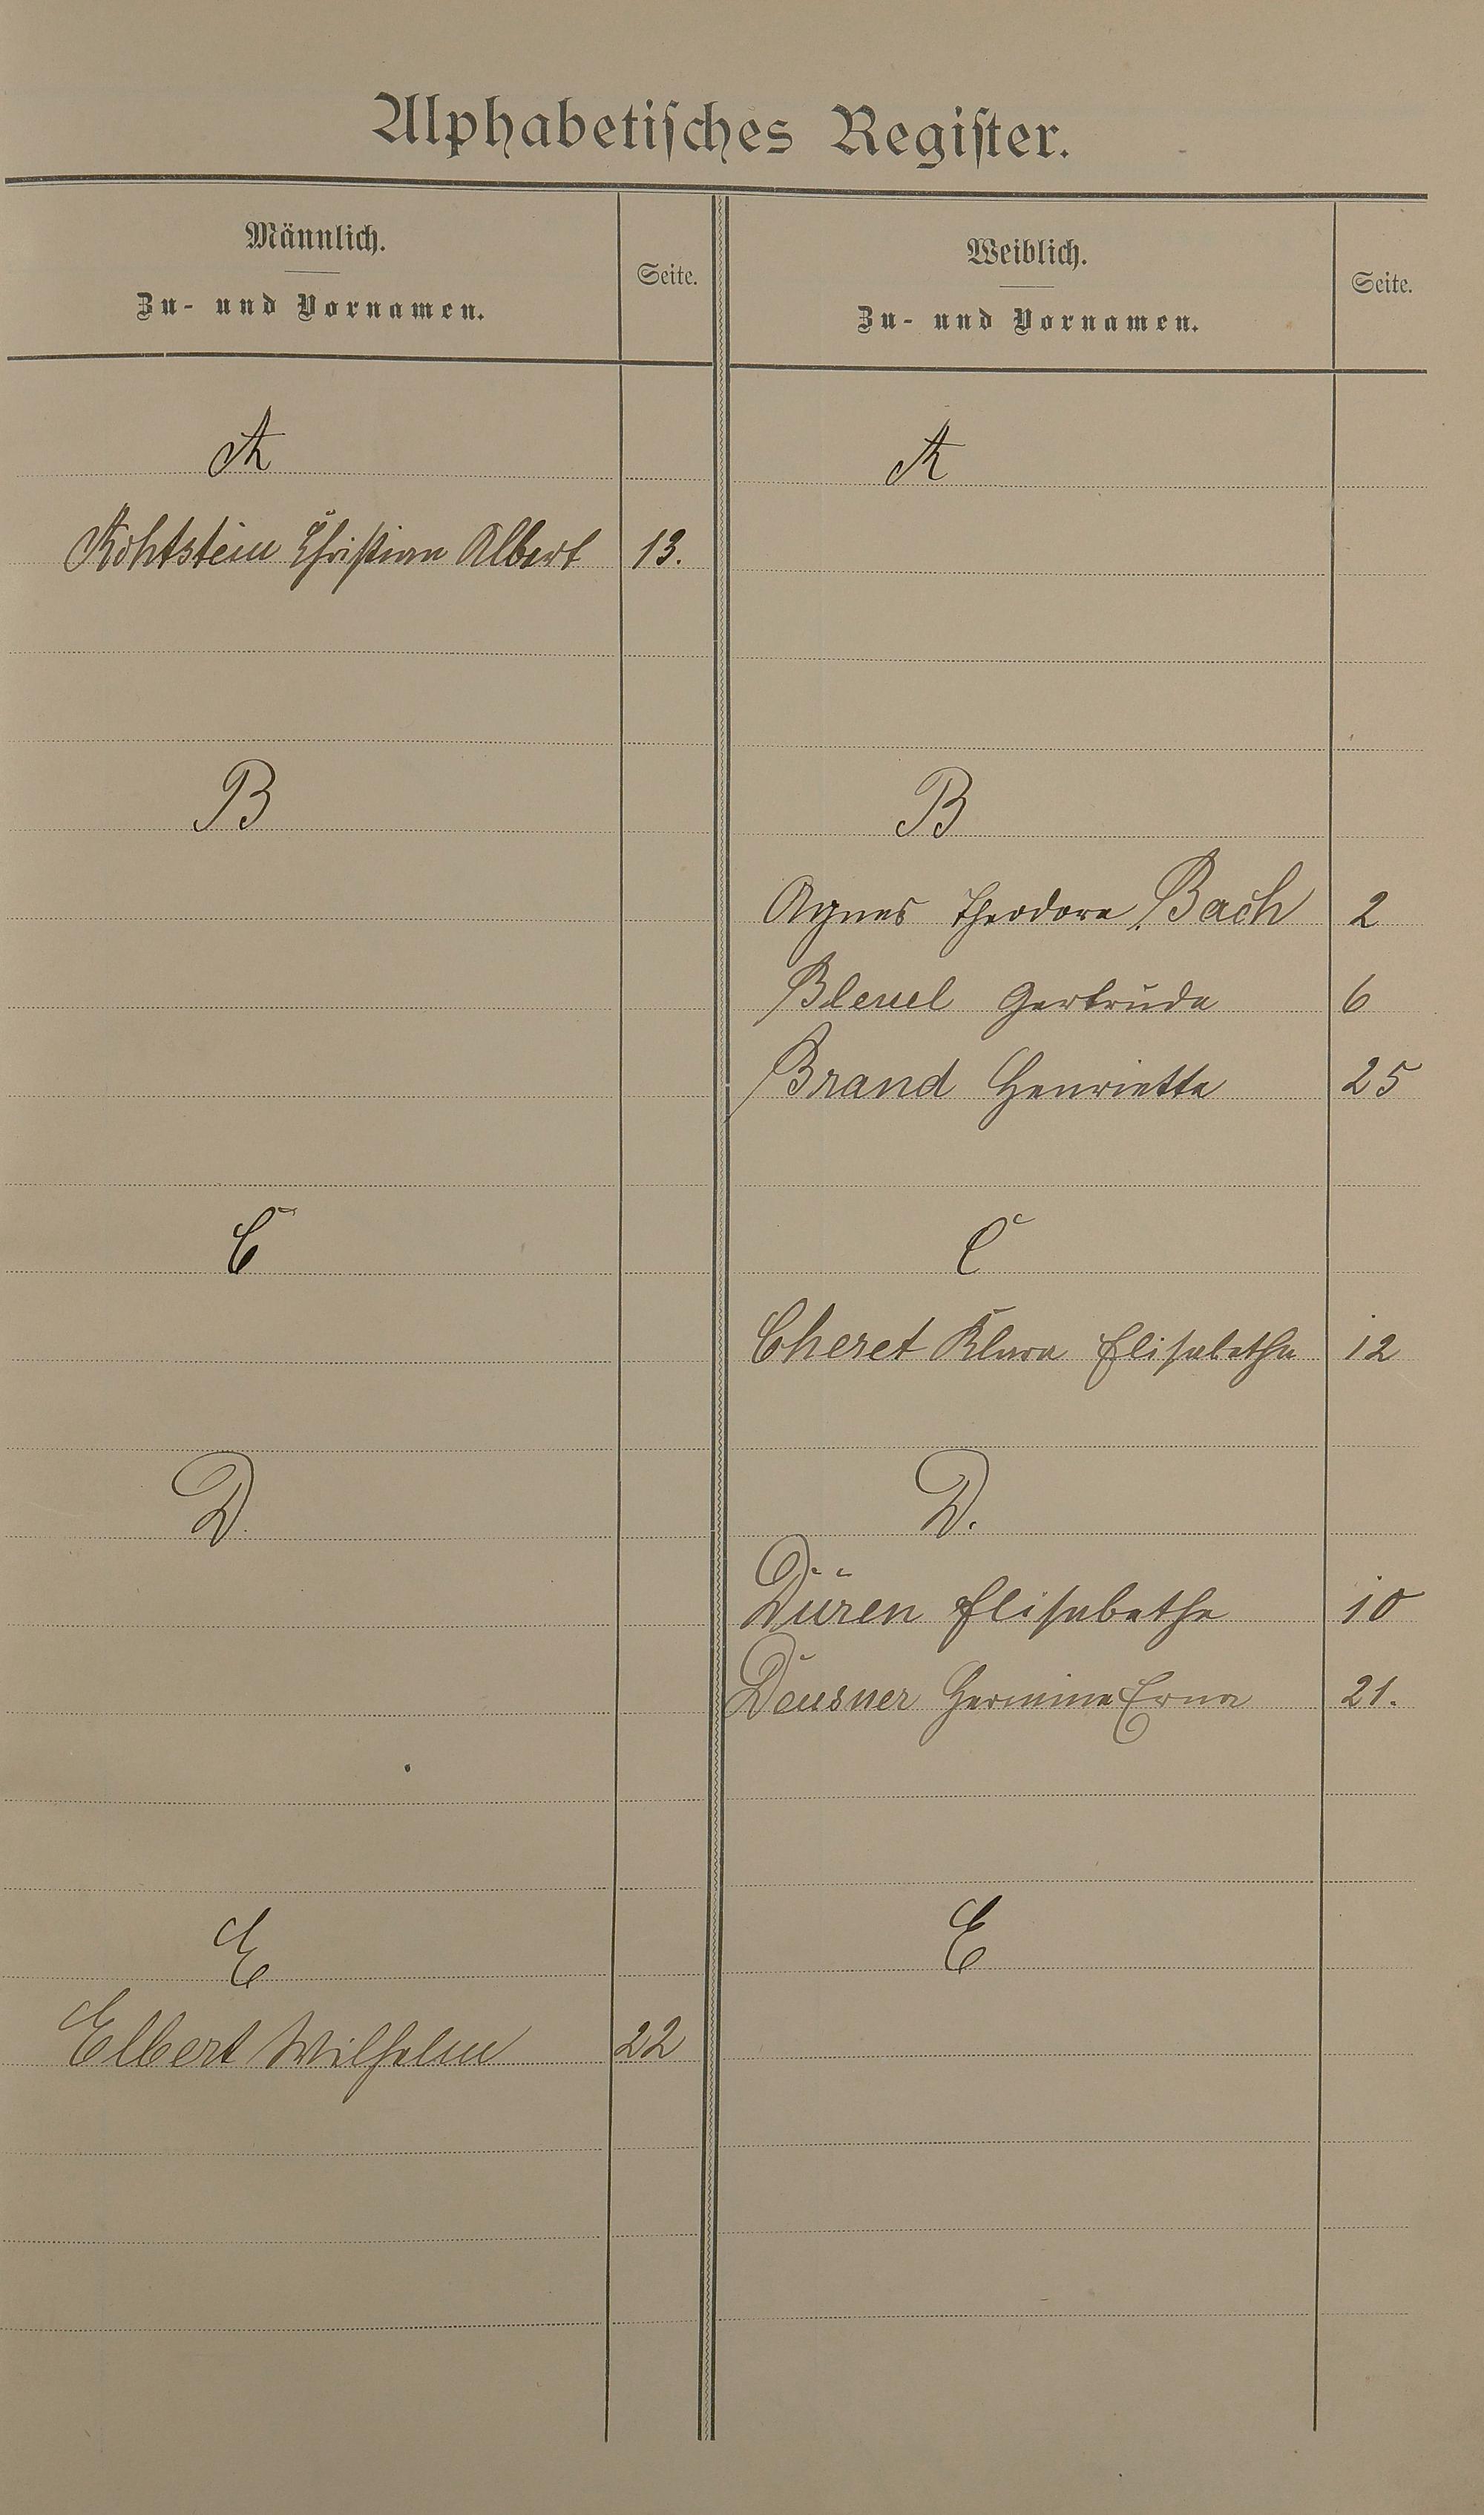 Alphabetisches Register.
Männlich.
Zu- und Vornamen.
Seite.
Weiblich.
Zu- und Vornamen.
Seite.
A
Christian Albert 13.
B
C
D.
E
Elbert Wilhelm 22
A
B
Agnes Theodora Bach 2
Bleuel Gertruda 6
Brand Henriette 25
C
Cheret Klara Elisabetha 12
D.
Düren Elisabetha 10
Deusner Hermine Erna 21.
E